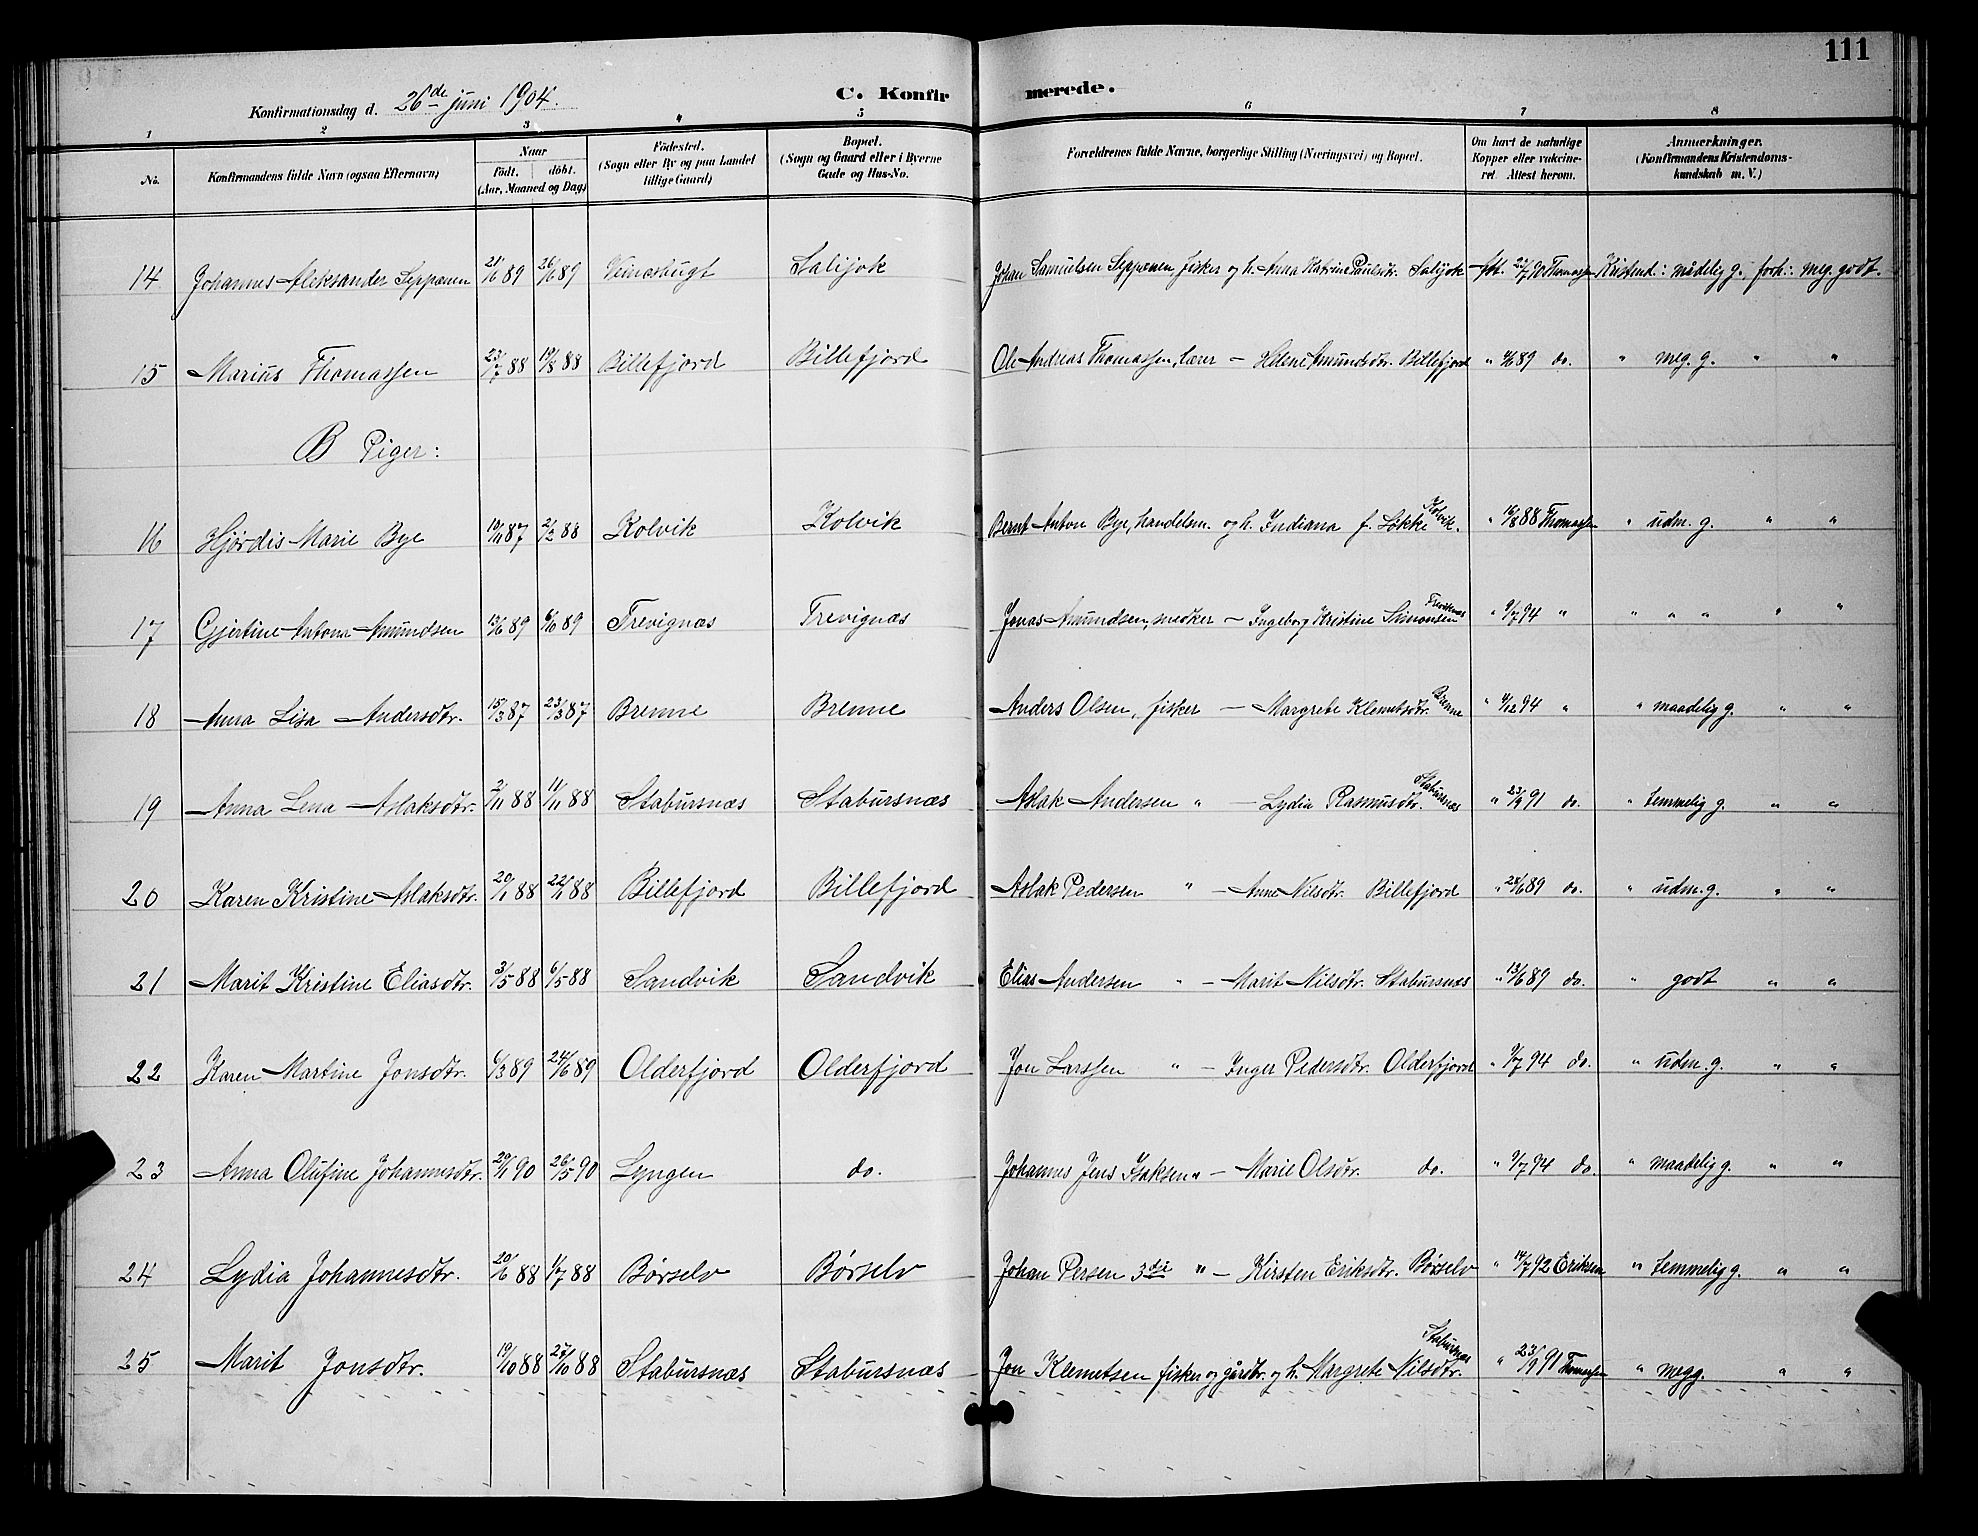 111
Konfirmationsdag d. 26de juni 1904.
C. Konfirmerede.
1 2 3 4 5 6 7 8
No. Konfirmandens fulde Navn (ogsaa Efternavn) Naar Födt. döbt. (Aar, Maaned og Dag) Födested. (Sogn eller By og paa Landet tillige Gaard) Bopæl. (Sogn og Gaard eller i Byerne Gade og Hus-No. Forældrenes fulde Navne, borgerlige Stilling (Næringsvei) og Bopæl. Om havt de naturlige Kopper eller vakcineret. Attest herom. Anmærkninger. (Konfirmandens Kristendomskundskab m. V.)
14 Johannes Aleksander Seppænen 21/6 89 26/6 89 Veinesbugt Salijok Johan Samuelsen Seppænen, fisker og h. Anna Katrine Paulsdtr. Salijok Att. 90 Thomassen Kristend.: mådelig g., forh.: meg. godt.
15 Marius Thomassen 23/7 88 19/8 88 Billefjord Billefjord Ole Andreas Thomassen, lærer — Helene Amundsdtr. Billefjord " 89 do. " meg. g. " "
B Piger:
16 Hjördis Marie Bye 19/11 87 2/2 88 Kolvik Kolvik Bernt Anton Bye, handelsm. og h. Indiana f. Lökke Kolvik. " 16/8 88 Thomassen " udm. g. " "
17 Gjertine Antona Amundsen 13/6 89 6/10 89 Trevignæs Trevignæs Jonas Amundsen, snedker — Ingeborg Kristine Simonsen Treviknæs " 9/7 94 " " " " " "
18 Anna Lisa Andersdtr. 15/3 87 23/3 87 Brenne Brenne Anders Olsen, fisker — Margrete Klemetsdtr. Brenne " 4/12 94 " " maadelig g. " "
19 Anna Lena Aslaksdtr. 2/11 88 11/11 88 Stabursnæs Stabursnæs Aslak Andersen " — Lydia Rasmusdtr. Stabursnæs " 23/9 91 do. " temmelig g. " "
20 Karen Kristine Aslaksdtr. 20/1 88 22/1 88 Billefjord Billefjord Aslak Pedersen " — Anne Nilsdtr. Billefjord " 28/6 89 do. " udm. g. " "
21 Marit Kristine Eliasdtr. 3/5 88 6/5 88 Sandvik Sandvik Elias Andersen " — Marit Nilsdtr. Stabursnæs " 13/6 89 do. " godt " "
22 Karen Martine Jonsdtr. 6/3 89 24/6 89 Olderfjord Olderfjord Jon Larssen " — Inger Pedersdtr. Olderfjord " 9/7 94 do. " udm. g. " "
23 Anna Olufine Johannesdtr. 29/1 90 26/5 90 Lyngen do. Johannes Jens Isaksen " — Marie Olsdtr. do. " 9/7 94 do. " maadelig g. " "
24 Lydia Johannesdtr. 20/6 88 1/7 88 Børselv Børselv Johan Persen 3die " — Kirsten Eriksdtr. Børselv " 14/7 92 Eriksen " temmelig g. " "
25 Marit Jonsdtr. 19/10 88 27/10 88 Stabursnæs Stabursnæs Jon Klemetsen fisker og gårdbr. og h. Margrete Nilsdtr. Stabursnæs " 23/9 91 Thomassen " megg. " "